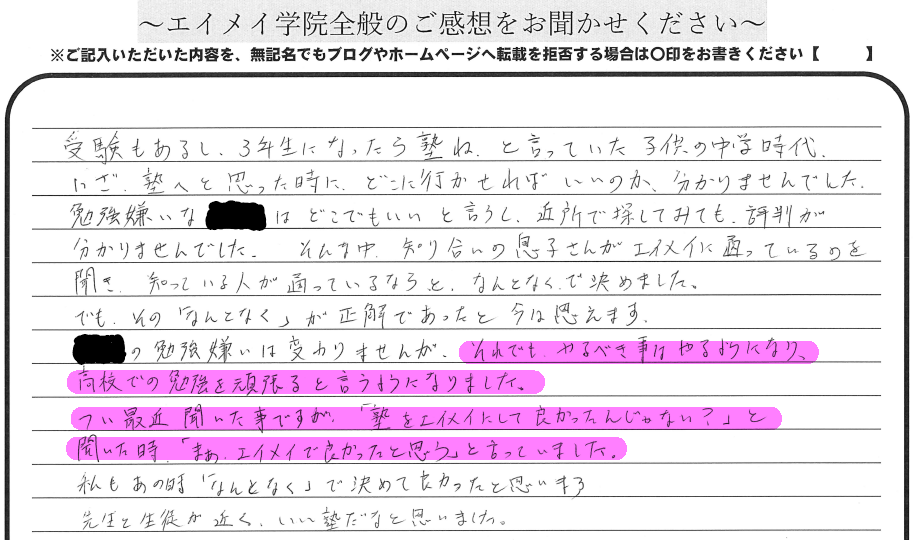 ～エイメイ学院全般のご感想をお聞かせください～
※ご記入いただいた内容を、無記名でもブログやホームページへ転載を拒否する場合は〇印をお書きください【　　】
受験もあるし、3年生になったら塾ね、と言っていた子供の中学時代、
いざ、塾へと思った時に、どこに行かせればいいのか、分かりませんでした。
勉強嫌いな　はどこでもいいと言うし、近所で探してみても、評判が
分かりませんでした。そんな中、知り合いの息子さんがエイメイに通っているのを
聞き、知っている人が通っているならと、なんとなくで決めました。
でも、その「なんとなく」が正解であったと今は思えます。
の勉強嫌いは変わりませんが、それでも、やるべき事はやるようになり、
高校での勉強を頑張ると言うようになりました。
つい最近聞いた事ですが、「塾をエイメイにして良かったんじゃない？」と
聞いた時、「まぁ、エイメイで良かったと思う」と言っていました。
私もあの時「なんとなく」で決めて良かったと思います
先生と生徒が近く、いい塾だなと思いました。